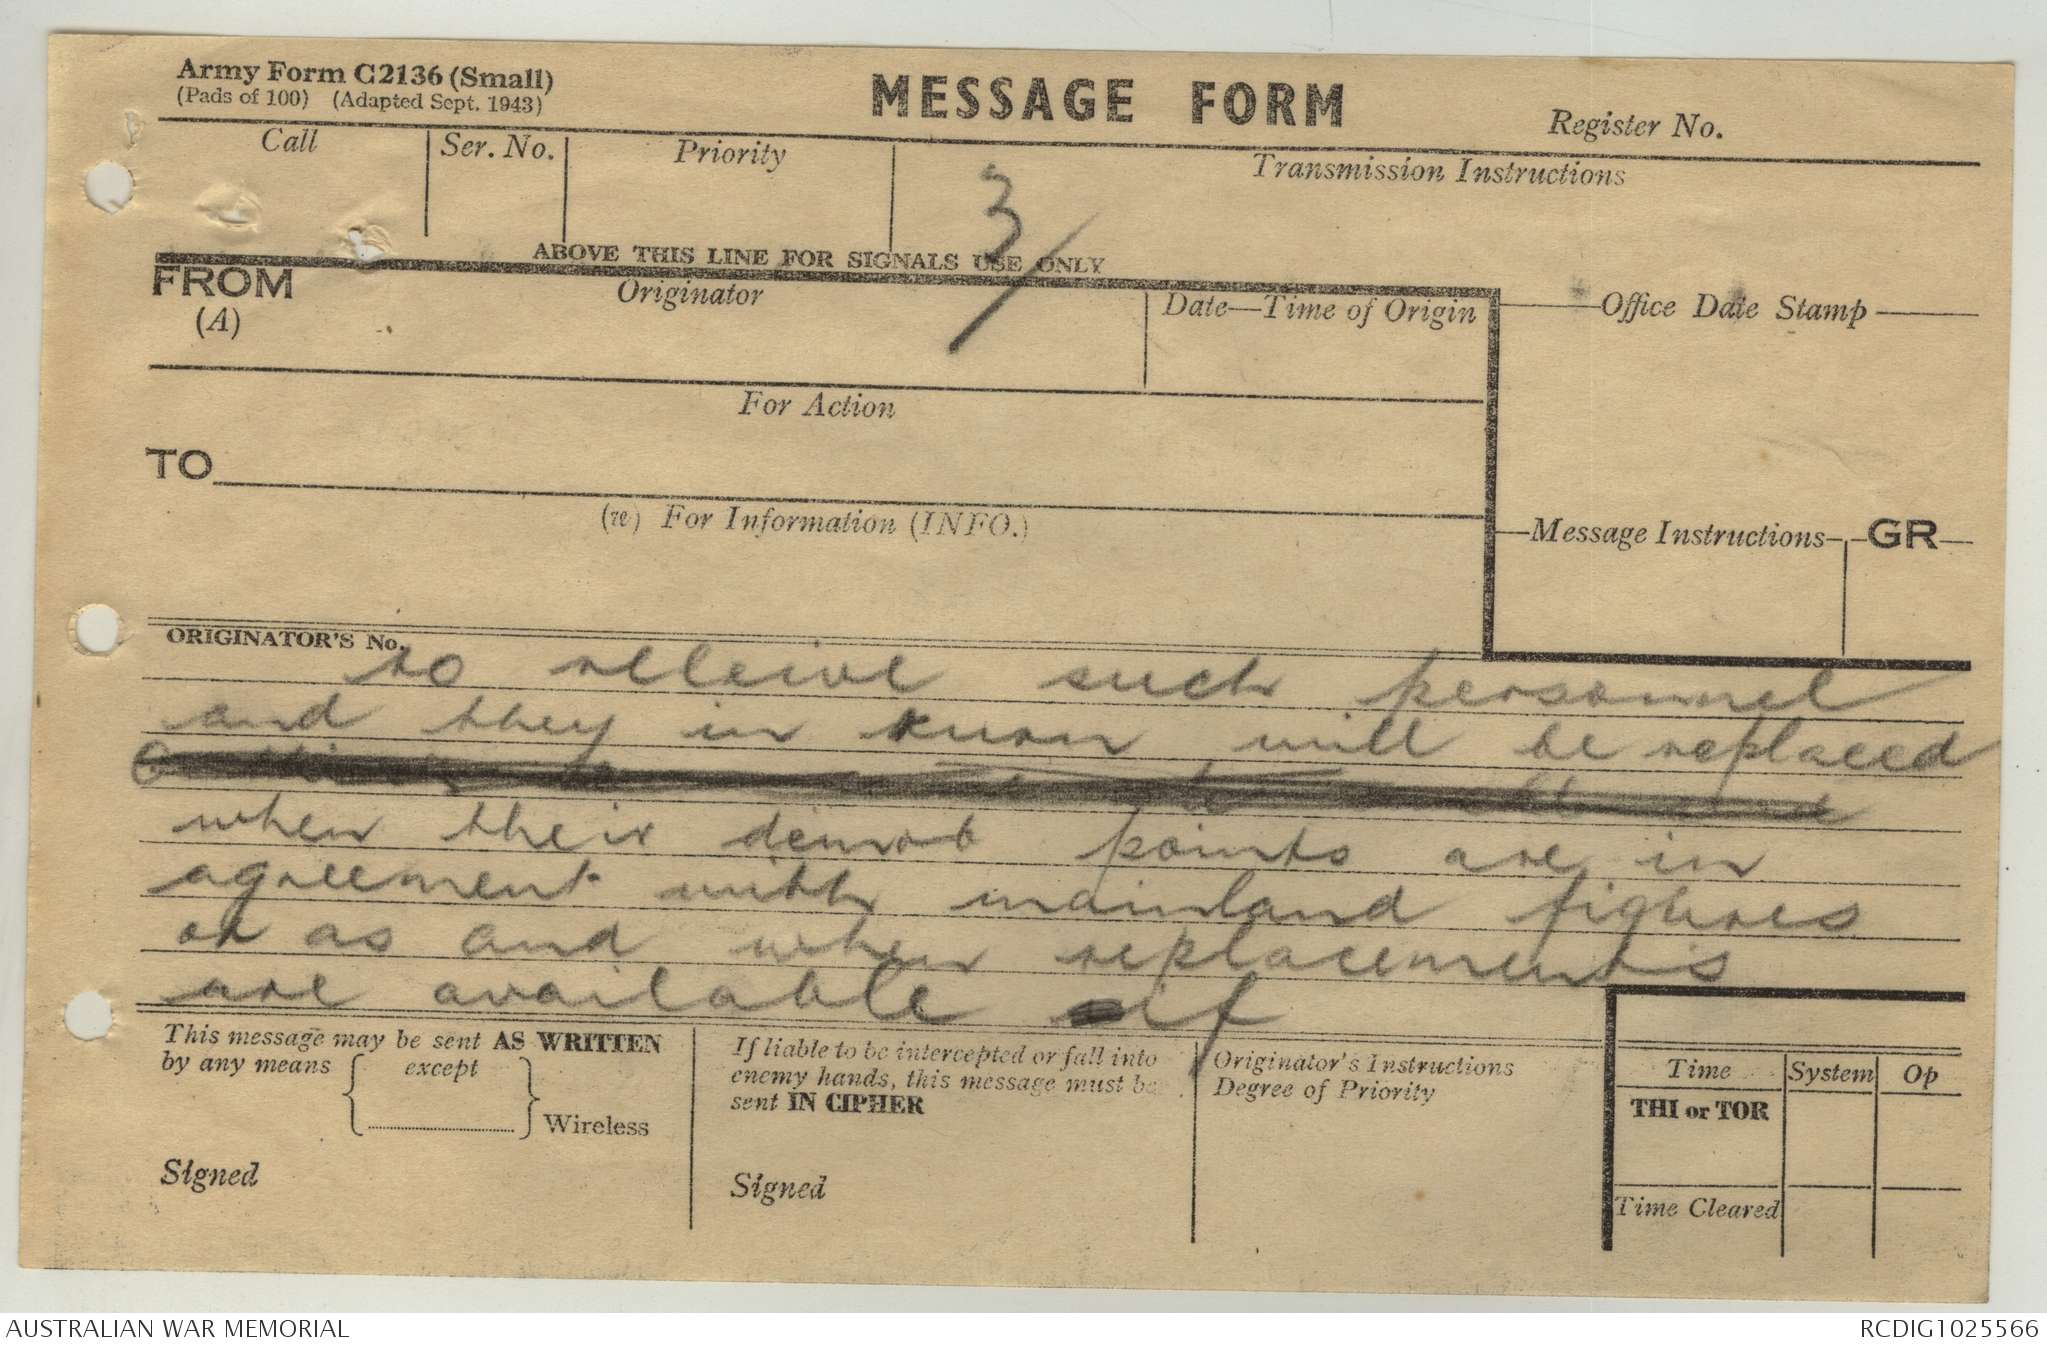 Army Form C2136 (Small)
(Pads of 100) (Adapted Sept. 1943)
MESSAGE FORM
Register No.
Call
Ser. No.
Priority
Transmission Instructions
3/
ABOVE THIS LINE FOR SIGNALS USE ONLY
FROM
(A)
Originator
Date—Time of Origin
Office Date Stamp
For Action
TO
(w) For Information (INFO.)
Message Instructions
GR
ORIGINATOR'S No.
to receive such personnel
and they in turn will be replaced
when their demob points are in
agreement with mainland figures
or as and when replacements
are available if
This message may be sent AS WRITTEN
by any means except
Wireless
Signed
If liable to be intercepted or fall into
enemy hands, this message must be
sent IN CIPHER
Signed
Originator's Instructions
Degree of Priority
Time
System
Op
THI or TOR
Time Cleared
AUSTRALIAN WAR MEMORIAL
RCDIG1025566